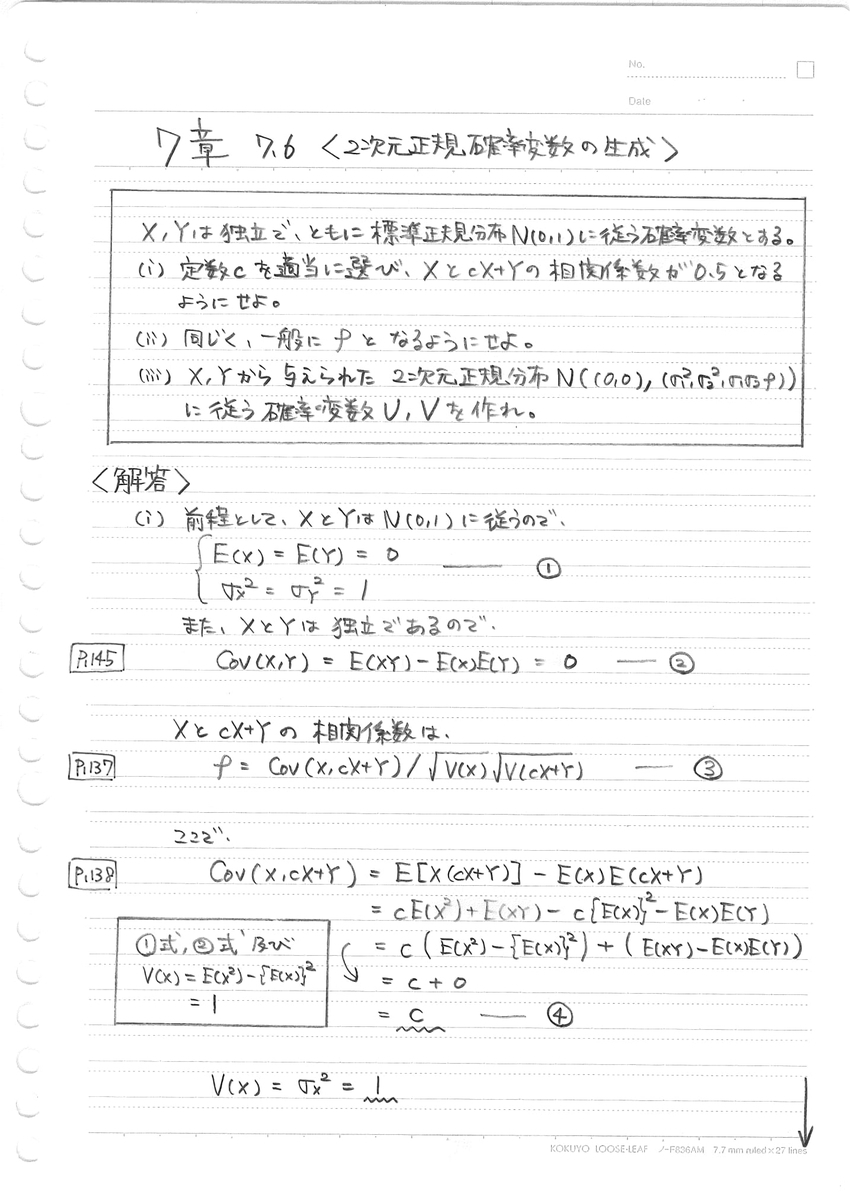 No.
Date
7章 7.6 <2次元正規確率変数の生成>
X, Yは独立で、ともに標準正規分布N(0,1)に従う確率変数とする。
(i) 定数cを適当に選び、XとcX+Yの相関係数が0.5となる
ようにせよ。
(ii) 同じく、一般にρとなるようにせよ。
(iii) X, Yから与えられた2次元正規分布N((0,0), (σ₁², σ₂², σ₁σ₂ρ))
に従う確率変数U, Vを作れ。
<解答>
(i) 前程として、XとYはN(0,1)に従うので、
E(X) = E(Y) = 0
σx² = σY² = 1 ―― ①
また、XとYは独立であるので、
P.145 Cov(X,Y) = E(XY) - E(X)E(Y) = 0 ―― ②
XとcX+Yの相関係数は、
P.137 ρ = Cov(X, cX+Y) / √V(X) √V(cX+Y) ―― ③
ここで、
P.138 Cov(X, cX+Y) = E[X(cX+Y)] - E(X)E(cX+Y)
= cE(X²) + E(XY) - c{E(X)}² - E(X)E(Y)
= c(E(X²) - {E(X)}²) + (E(XY) - E(X)E(Y))
= c + 0
= c ―― ④
①式, ②式 及び
V(X) = E(X²) - {E(X)}²
= 1
V(X) = σx² = 1
KOKUYO LOOSE-LEAF ノ-F836AM 7.7 mm ruled × 27 lines